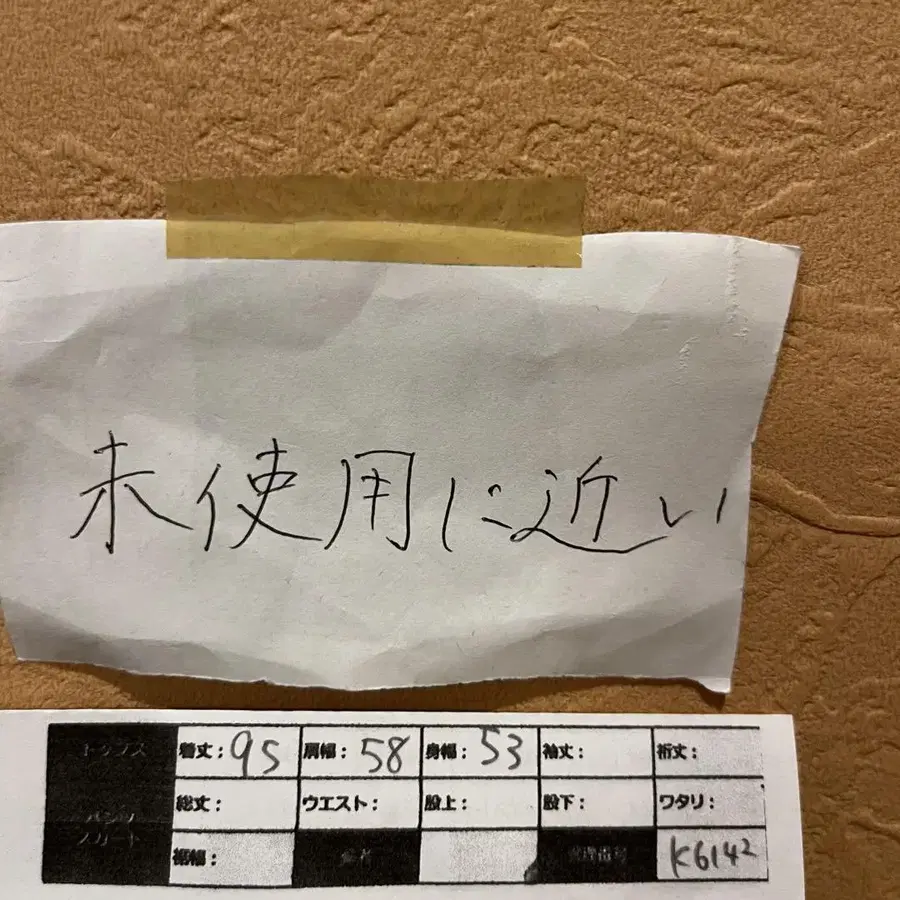 未使用に近い
トップス 着丈：95 肩幅：58 身幅：53 袖丈：裄丈：
パンツ 総丈： ウエスト： 股上： 股下： ワタリ：
スカート 裾幅： 管理番号 K6142